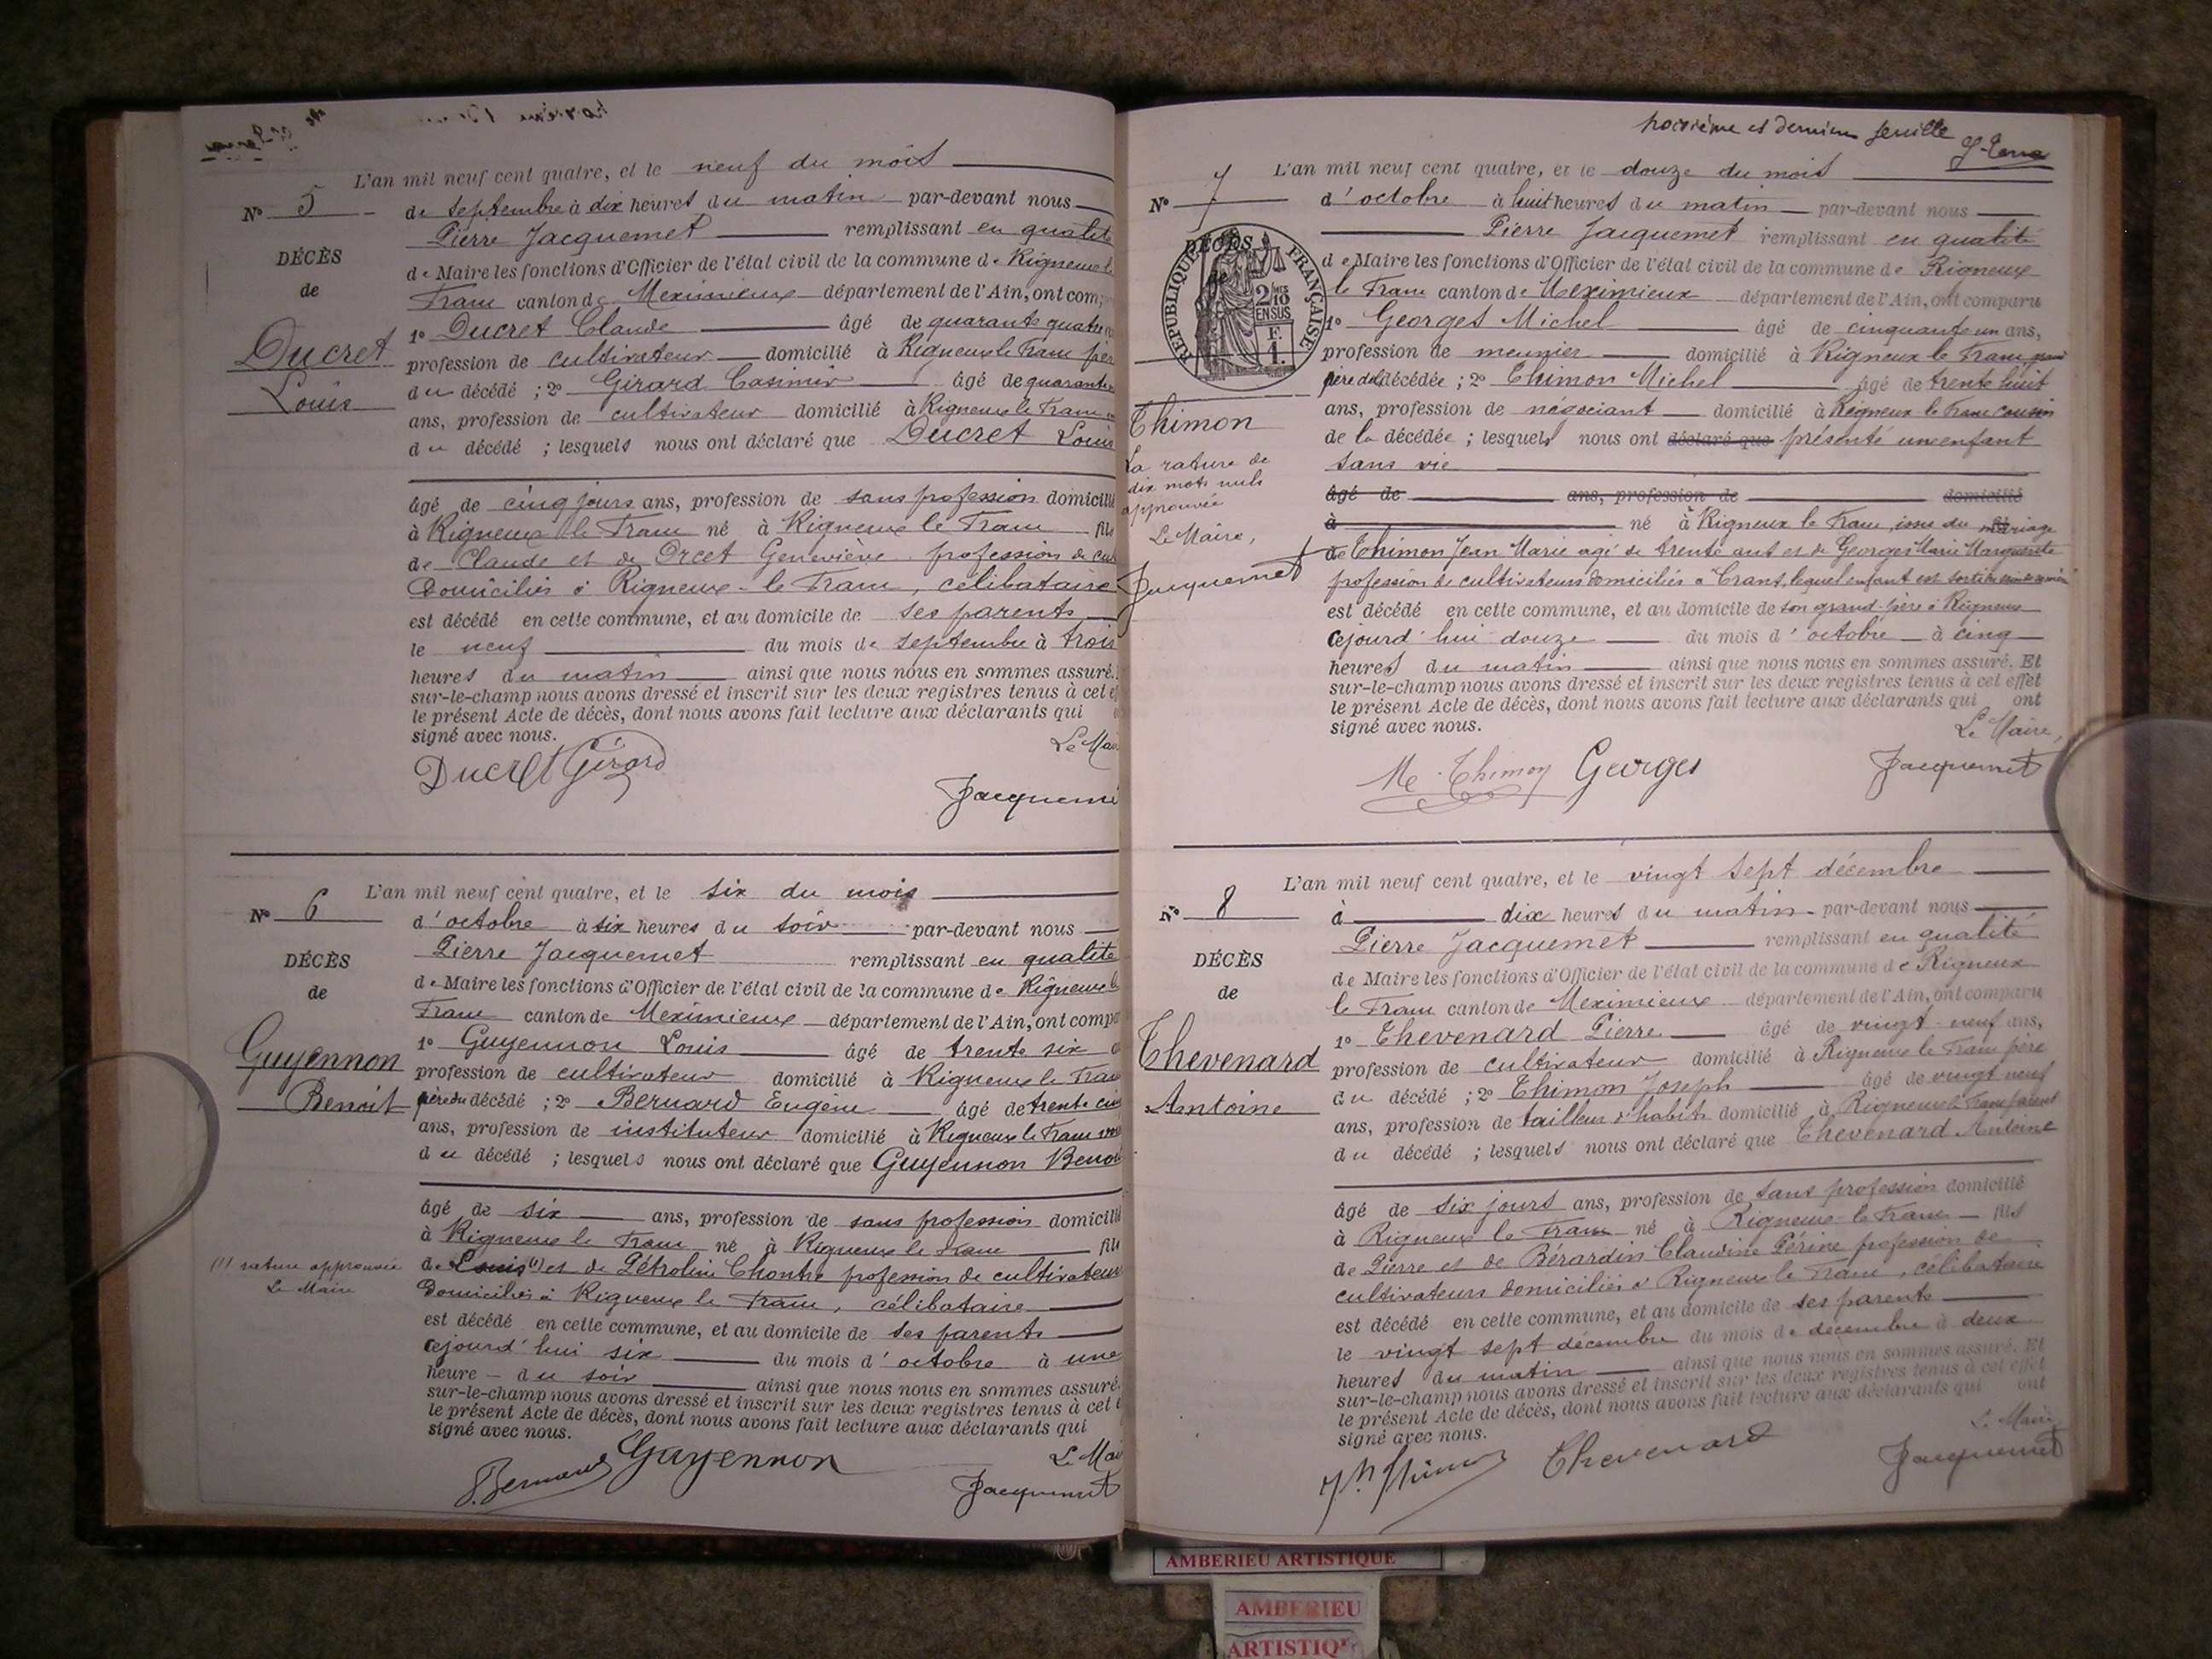 L'an mil neuf cent quatre, et le neuf du mois
N° 5
de septembre à dix heures du matin par-devant nous
Pierre Jacquemet remplissant en qualité
DÉCÈS
de
Ducret
Louis
de Maire les fonctions d'Officier de l'état civil de la commune de Rigneux le
Franc canton de Meximieux département de l'Ain, ont com
1° Ducret Claude âgé de quarante quatre
profession de cultivateur domicilié à Rigneux le Franc père
du décédé ; 2° Girard Casimir âgé de quarante
ans, profession de cultivateur domicilié à Rigneux le Franc
du décédé ; lesquels nous ont déclaré que Ducret Louis
âgé de cinq jours ans, profession de sans profession domicilié
à Rigneux le Franc né à Rigneux le Franc fils
de Claude et de Orcet Geneviève profession de cul
Domiciliés à Rigneux-le Franc, célibataire
est décédé en cette commune, et au domicile de ses parents
le neuf du mois de septembre à trois
heures du matin ainsi que nous nous en sommes assuré.
sur-le-champ nous avons dressé et inscrit sur les deux registres tenus à cet e
le présent Acte de décès, dont nous avons fait lecture aux déclarants qui
signé avec nous.
Le Mai
Ducret Girard
Jacqueme
L'an mil neuf cent quatre, et le six du mois
N° 6
d'octobre à six heures du soir par-devant nous
Pierre Jacquemet remplissant en qualité
DÉCÈS
de
Guyennon
Benoit
de Maire les fonctions d'Officier de l'état civil de la commune de Rigneux le
Franc canton de Meximieux département de l'Ain, ont compa
1° Guyennon Louis âgé de trente six a
profession de cultivateur domicilié à Rigneux le Franc
père du décédé ; 2° Bernard Eugène âgé de trente cinq
ans, profession de instituteur domicilié à Rigneux le Franc
du décédé ; lesquels nous ont déclaré que Guyennon Benoit
âgé de six ans, profession de sans profession domicilié
à Rigneux le Franc né à Rigneux le Franc fils
(1) rature approuvée
Le Maire
de Louis (1) et de Pétroline Chontre profession de cultivateurs
Domiciliés à Rigneux le Franc, célibataire
est décédé en cette commune, et au domicile de ses parents
cejourd'hui six du mois d'octobre à une
heure - du soir ainsi que nous nous en sommes assuré.
sur-le-champ nous avons dressé et inscrit sur les deux registres tenus à cet
le présent Acte de décès, dont nous avons fait lecture aux déclarants qui
signé avec nous.
Le Mai
Bernard Guyennon
Jacquemet
et dernier feuille
L'an mil neuf cent quatre, et le douze du mois
N° 7
d'octobre à huit heures du matin par-devant nous
Pierre Jacquemet remplissant en qualité
DÉCÈS
de
RÉPUBLIQUE FRANÇAISE
2/10 MES
EN SUS
F.
1.
Thimon
La rature de
dix mots nuls
approuvée
Le Maire,
Jacquemet
de Maire les fonctions d'Officier de l'état civil de la commune de Rigneux
le Franc canton de Meximieux département de l'Ain, ont comparu
1° Georges Michel âgé de cinquante un ans,
profession de meunier domicilié à Rigneux le Franc grand
père de la décédée ; 2° Thimon Michel âgé de trente huit
ans, profession de négociant domicilié à Rigneux le Franc cousin
de la décédée ; lesquels nous ont déclaré que présenté un enfant
sans vie
âgé de ans, profession de domicilié
à né à Rigneux le Franc, issu du mariage
de Thimon Jean Marie agé de trente ans et de Georges Marie Marguerite
profession de cultivateurs domiciliés à Crans, lequel enfant est sorti
est décédé en cette commune, et au domicile de son grand-père à Rigneux
cejourd'hui douze du mois d'octobre à cinq
heures du matin ainsi que nous nous en sommes assuré. Et
sur-le-champ nous avons dressé et inscrit sur les deux registres tenus à cet effet
le présent Acte de décès, dont nous avons fait lecture aux déclarants qui ont
signé avec nous.
Le Maire,
M. Thimon Georges
Jacquemet
L'an mil neuf cent quatre, et le vingt sept décembre
N° 8
à dix heures du matin par-devant nous
Pierre Jacquemet remplissant en qualité
DÉCÈS
de
Thevenard
Antoine
de Maire les fonctions d'Officier de l'état civil de la commune de Rigneux
le Franc canton de Meximieux département de l'Ain, ont comparu
1° Thevenard Pierre âgé de vingt neuf ans,
profession de cultivateur domicilié à Rigneux le Franc père
du décédé ; 2° Thimon Joseph âgé de vingt neuf
ans, profession de tailleur d'habits domicilié à Rigneux le Franc parent
du décédé ; lesquels nous ont déclaré que Thevenard Antoine
âgé de six jours ans, profession de sans profession domicilié
à Rigneux le Franc né à Rigneux-le Franc fils
de Pierre et de Bérardin Claudine Périne profession de
cultivateurs domiciliés à Rigneux le Franc, célibataire
est décédé en cette commune, et au domicile de ses parents
le vingt sept décembre du mois de décembre à deux
heures du matin ainsi que nous nous en sommes assuré. Et
sur-le-champ nous avons dressé et inscrit sur les deux registres tenus à cet effet
le présent Acte de décès, dont nous avons fait lecture aux déclarants qui ont
signé avec nous.
Le Maire
Thevenard
Jacquemet
AMBERIEU ARTISTIQUE
AMBERIEU
ARTISTIQU